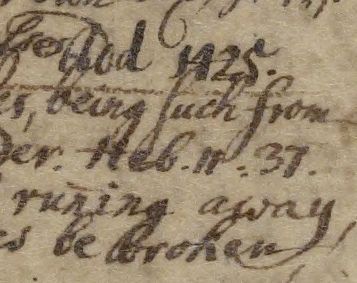 God 1425.
es, being such from
der. Heb. 11. 37.
runing away
es be broken